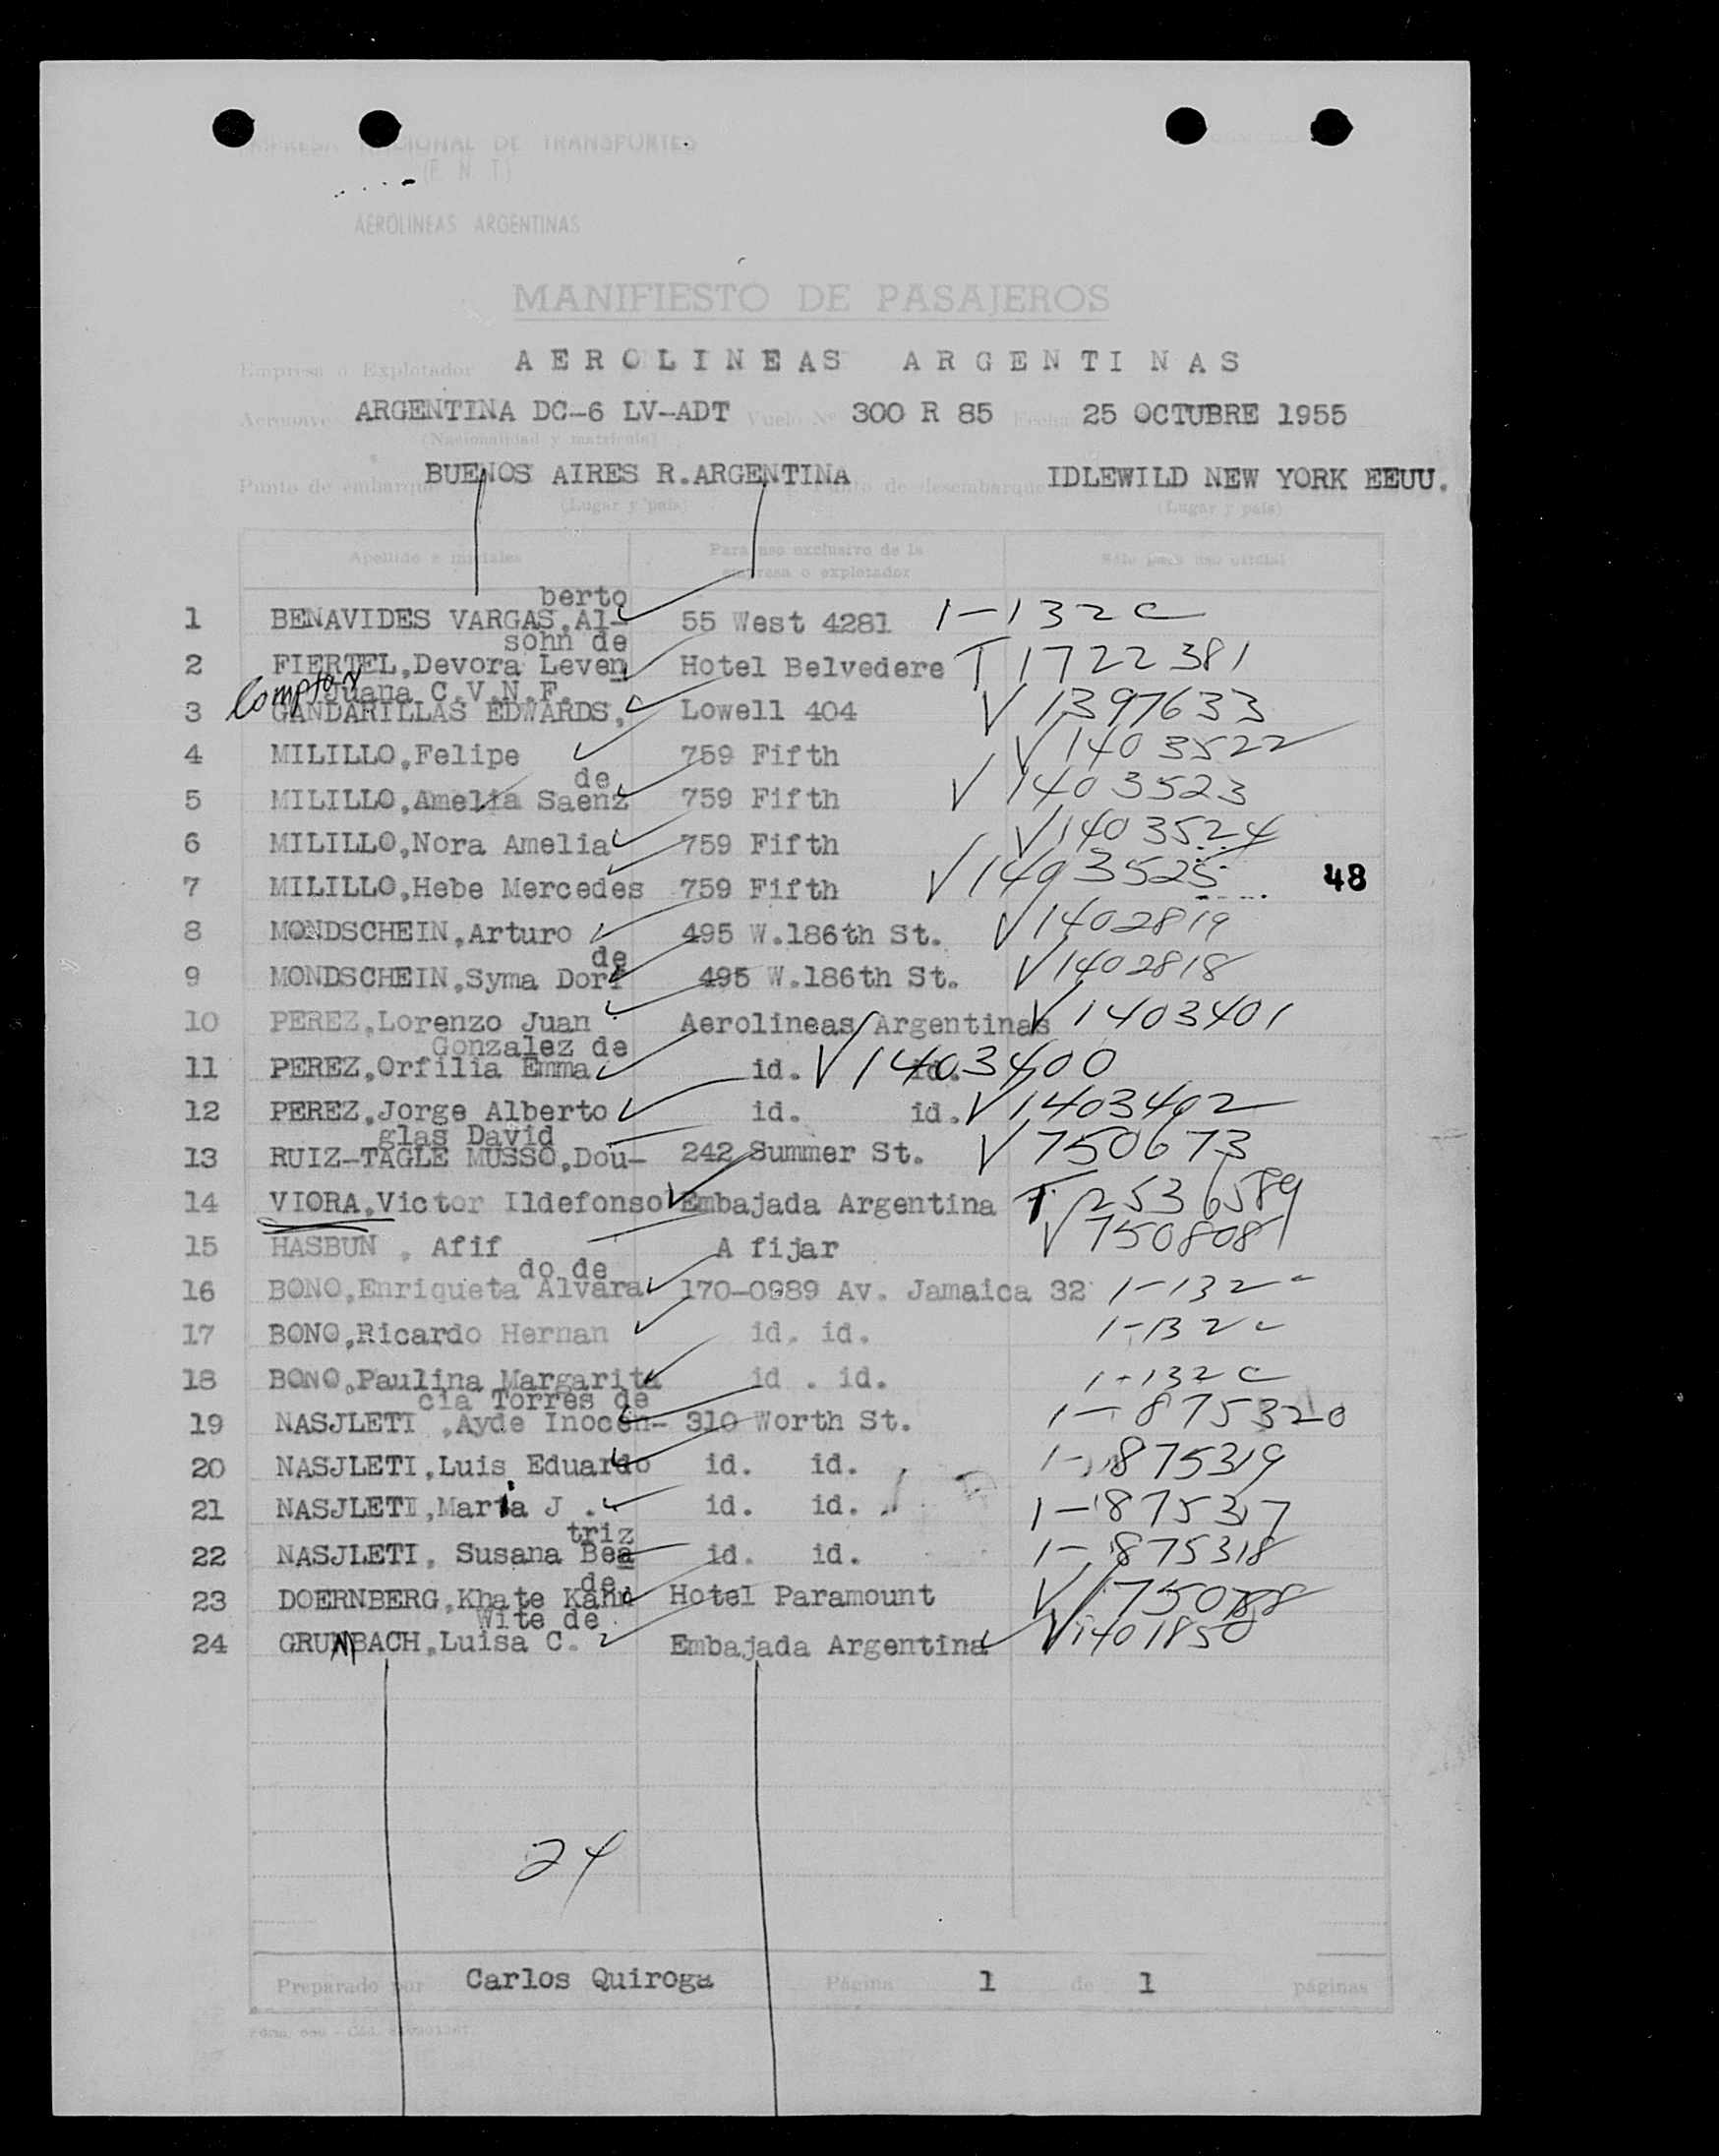 NACIONAL DE TRANSPORTES
(E. N. T.)
AEROLINEAS ARGENTINAS
MANIFIESTO DE PASAJEROS
Empresa o Explotador AEROLINEAS ARGENTINAS
Aeronave ARGENTINA DC-6 LV-ADT Vuelo Nº 300 R 85 Fecha 25 OCTUBRE 1955
(Nacionalidad y matrícula)
Punto de embarque BUENOS AIRES R.ARGENTINA Punto de desembarque IDLEWILD NEW YORK EEUU.
(Lugar y país) (Lugar y país)
Apellido e iniciales Para uso exclusivo de la empresa o explotador Sólo para uso oficial
berto
1 BENAVIDES VARGAS,Al- 55 West 4281 1-132 C
sohn de
2 FIERTEL,Devora Leven Hotel Belvedere T 1722381
Juana C.V.N.F.
3 GANDARILLAS EDWARDS, Lowell 404 V 1397633
4 MILILLO,Felipe 759 Fifth V 1403522
de
5 MILILLO,Amelia Saenz 759 Fifth V 1403523
6 MILILLO,Nora Amelia 759 Fifth V 1403524
7 MILILLO,Hebe Mercedes 759 Fifth V 1403525 48
8 MONDSCHEIN,Arturo 495 W.186th St. V 1402819
de
9 MONDSCHEIN,Syma Dorf 495 W.186th St. V 1402818
10 PEREZ,Lorenzo Juan Aerolineas Argentinas V 1403401
Gonzalez de
11 PEREZ,Orfilia Emma id. id. V 1403400
12 PEREZ,Jorge Alberto id. id. V 1403402
glas David
13 RUIZ-TAGLE MUSSO,Dou- 242 Summer St. V 750673
14 VIORA,Victor Ildefonso Embajada Argentina T 2536589
15 HASBUN , Afif A fijar V 750808
do de
16 BONO,Enriqueta Alvara 170-0989 Av. Jamaica 32 1-132 c
17 BONO,Ricardo Hernan id. id. 1-132 c
18 BONO,Paulina Margarita id . id. 1-132 C
cia Torres de
19 NASJLETI ,Ayde Inocen- 310 Worth St. 1-875320
20 NASJLETI,Luis Eduardo id. id. 1-875319
21 NASJLETI,Maria J . id. id. 1-875317
triz
22 NASJLETI, Susana Bea id. id. 1-875318
de
23 DOERNBERG,Khate Kahn Hotel Paramount V 1750788
Wite de
24 GRUMBACH,Luisa C. Embajada Argentina V 1401850
24
Preparado por Carlos Quiroga Página 1 de 1 páginas